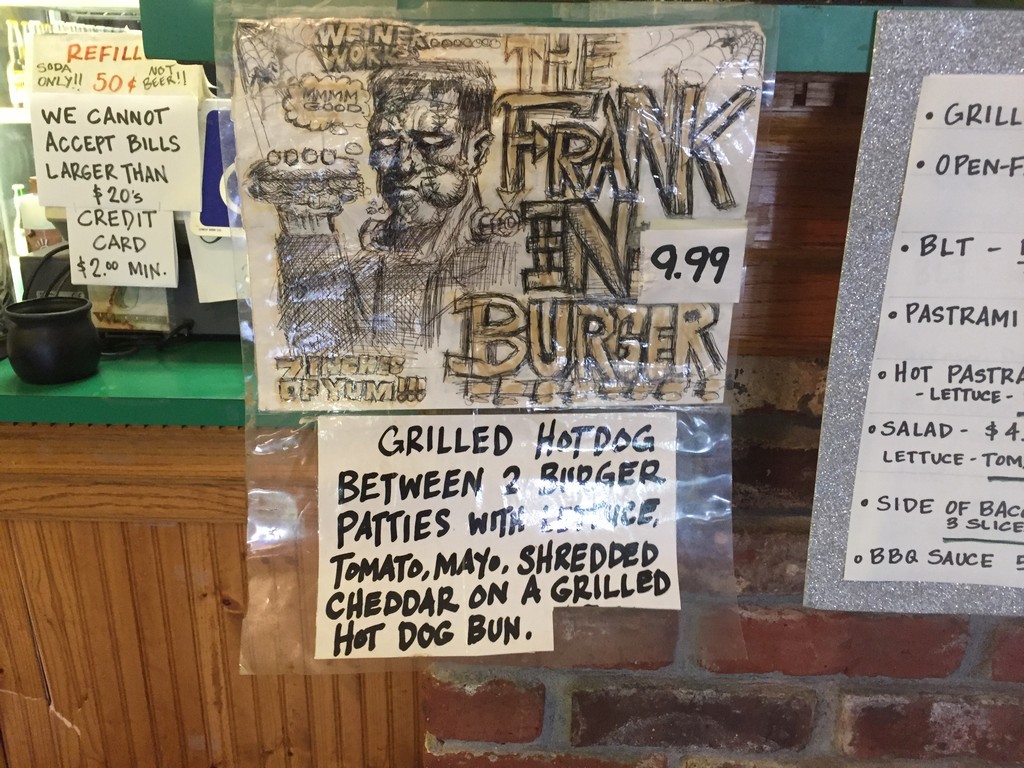 REFILL
SODA ONLY!! 50¢ NOT BEER!!
WE CANNOT
ACCEPT BILLS
LARGER THAN
$20's
CREDIT
CARD
$2.00 MIN.
MMMM
GOOD
THE
FRANK
IN
BURGER
9.99
7 INCHES
OF YUM!!!
GRILLED HOTDOG
BETWEEN 2 BURGER
PATTIES WITH LETTUCE,
TOMATO, MAYO, SHREDDED
CHEDDAR ON A GRILLED
HOT DOG BUN.
• GRILL
• OPEN-F
• BLT -
• PASTRAMI
• HOT PASTRA
- LETTUCE -
• SALAD - $4
LETTUCE - TOM
• SIDE OF BAC
3 SLICE
• BBQ SAUCE 5